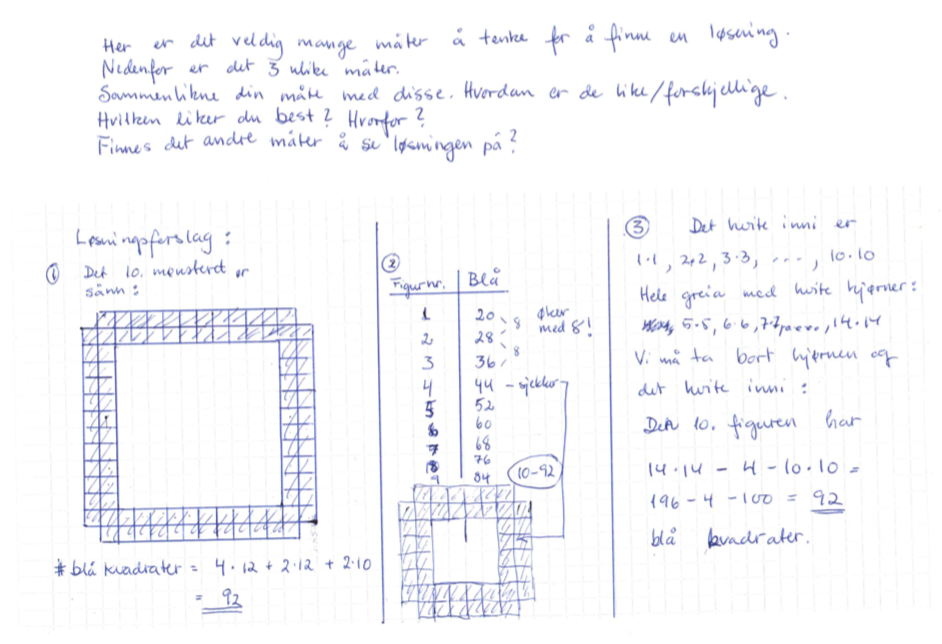 Her er det veldig mange måter å tenke for å finne en løsning.
Nedenfor er det 3 ulike måter.
Sammenlikne din måte med disse. Hvordan er de like/forskjellige.
Hvilken liker du best? Hvorfor?
Finnes det andre måter å se løsningen på?
Løsningsforslag:
① Det 10. mønsteret er
sånn:
# blå kvadrater = 4·12 + 2·12 + 2·10
= 92
②
Figurnr. Blå
1 20
8 øker
med 8!
2 28
8
3 36
4 44 - sjekker
5 52
6 60
7 68
8 76
9 84
10-92
③ Det hvite inni er
1·1, 2·2, 3·3, ..., 10·10
Hele greia med hvite hjørner:
5·5, 6·6, 7·7, 14·14
Vi må ta bort hjørnen og
det hvite inni:
Den 10. figuren har
14·14 - 4 - 10·10 =
196 - 4 - 100 = 92
blå kvadrater.